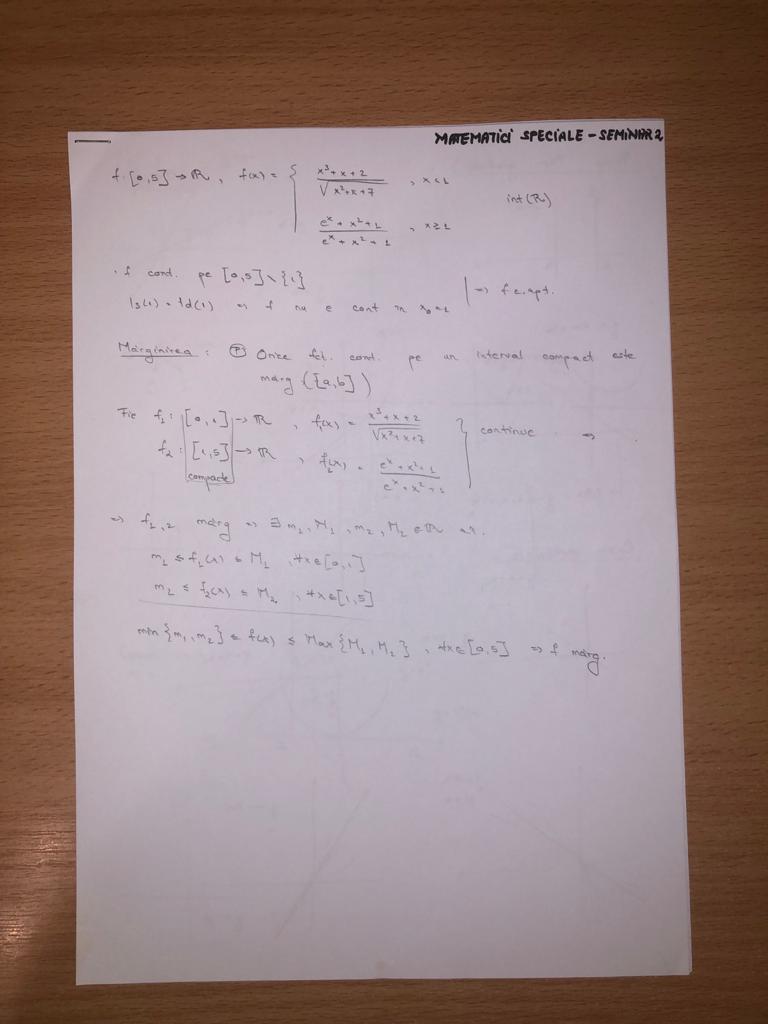 MATEMATICI SPECIALE - SEMINAR 2
f: [0,5] → ℝ, f(x) = { (x³+x+2)/√(x²+x+7) , x<1
(eˣ+x²+1)/(eˣ+x²+1) , x≥1
int(R)
· f cont. pe [0,5] \ {1}
ls(1) = ld(1) ⇒ f nu e cont in x₀=1 | ⇒ f c.apt.
Mărginirea : (P) Orice fct. cont. pe un interval compact este
mărg ([a,b])
Fie f₁: [0,1] → ℝ , f₁(x) = (x³+x+2)/√(x²+x+7)
f₂: [1,5] → ℝ , f₂(x) = (eˣ+x²+1)/(eˣ+x²+1) } continue ⇒
compacte
⇒ f₁,₂ mărg ⇒ ∃ m₁, M₁, m₂, M₂ ∈ ℝ aî.
m₁ ≤ f₁(x) ≤ M₁ , ∀x∈[0,1]
m₂ ≤ f₂(x) ≤ M₂ , ∀x∈[1,5]
min {m₁, m₂} ≤ f(x) ≤ Max {M₁, M₂} , ∀x∈[0,5] ⇒ f mărg.